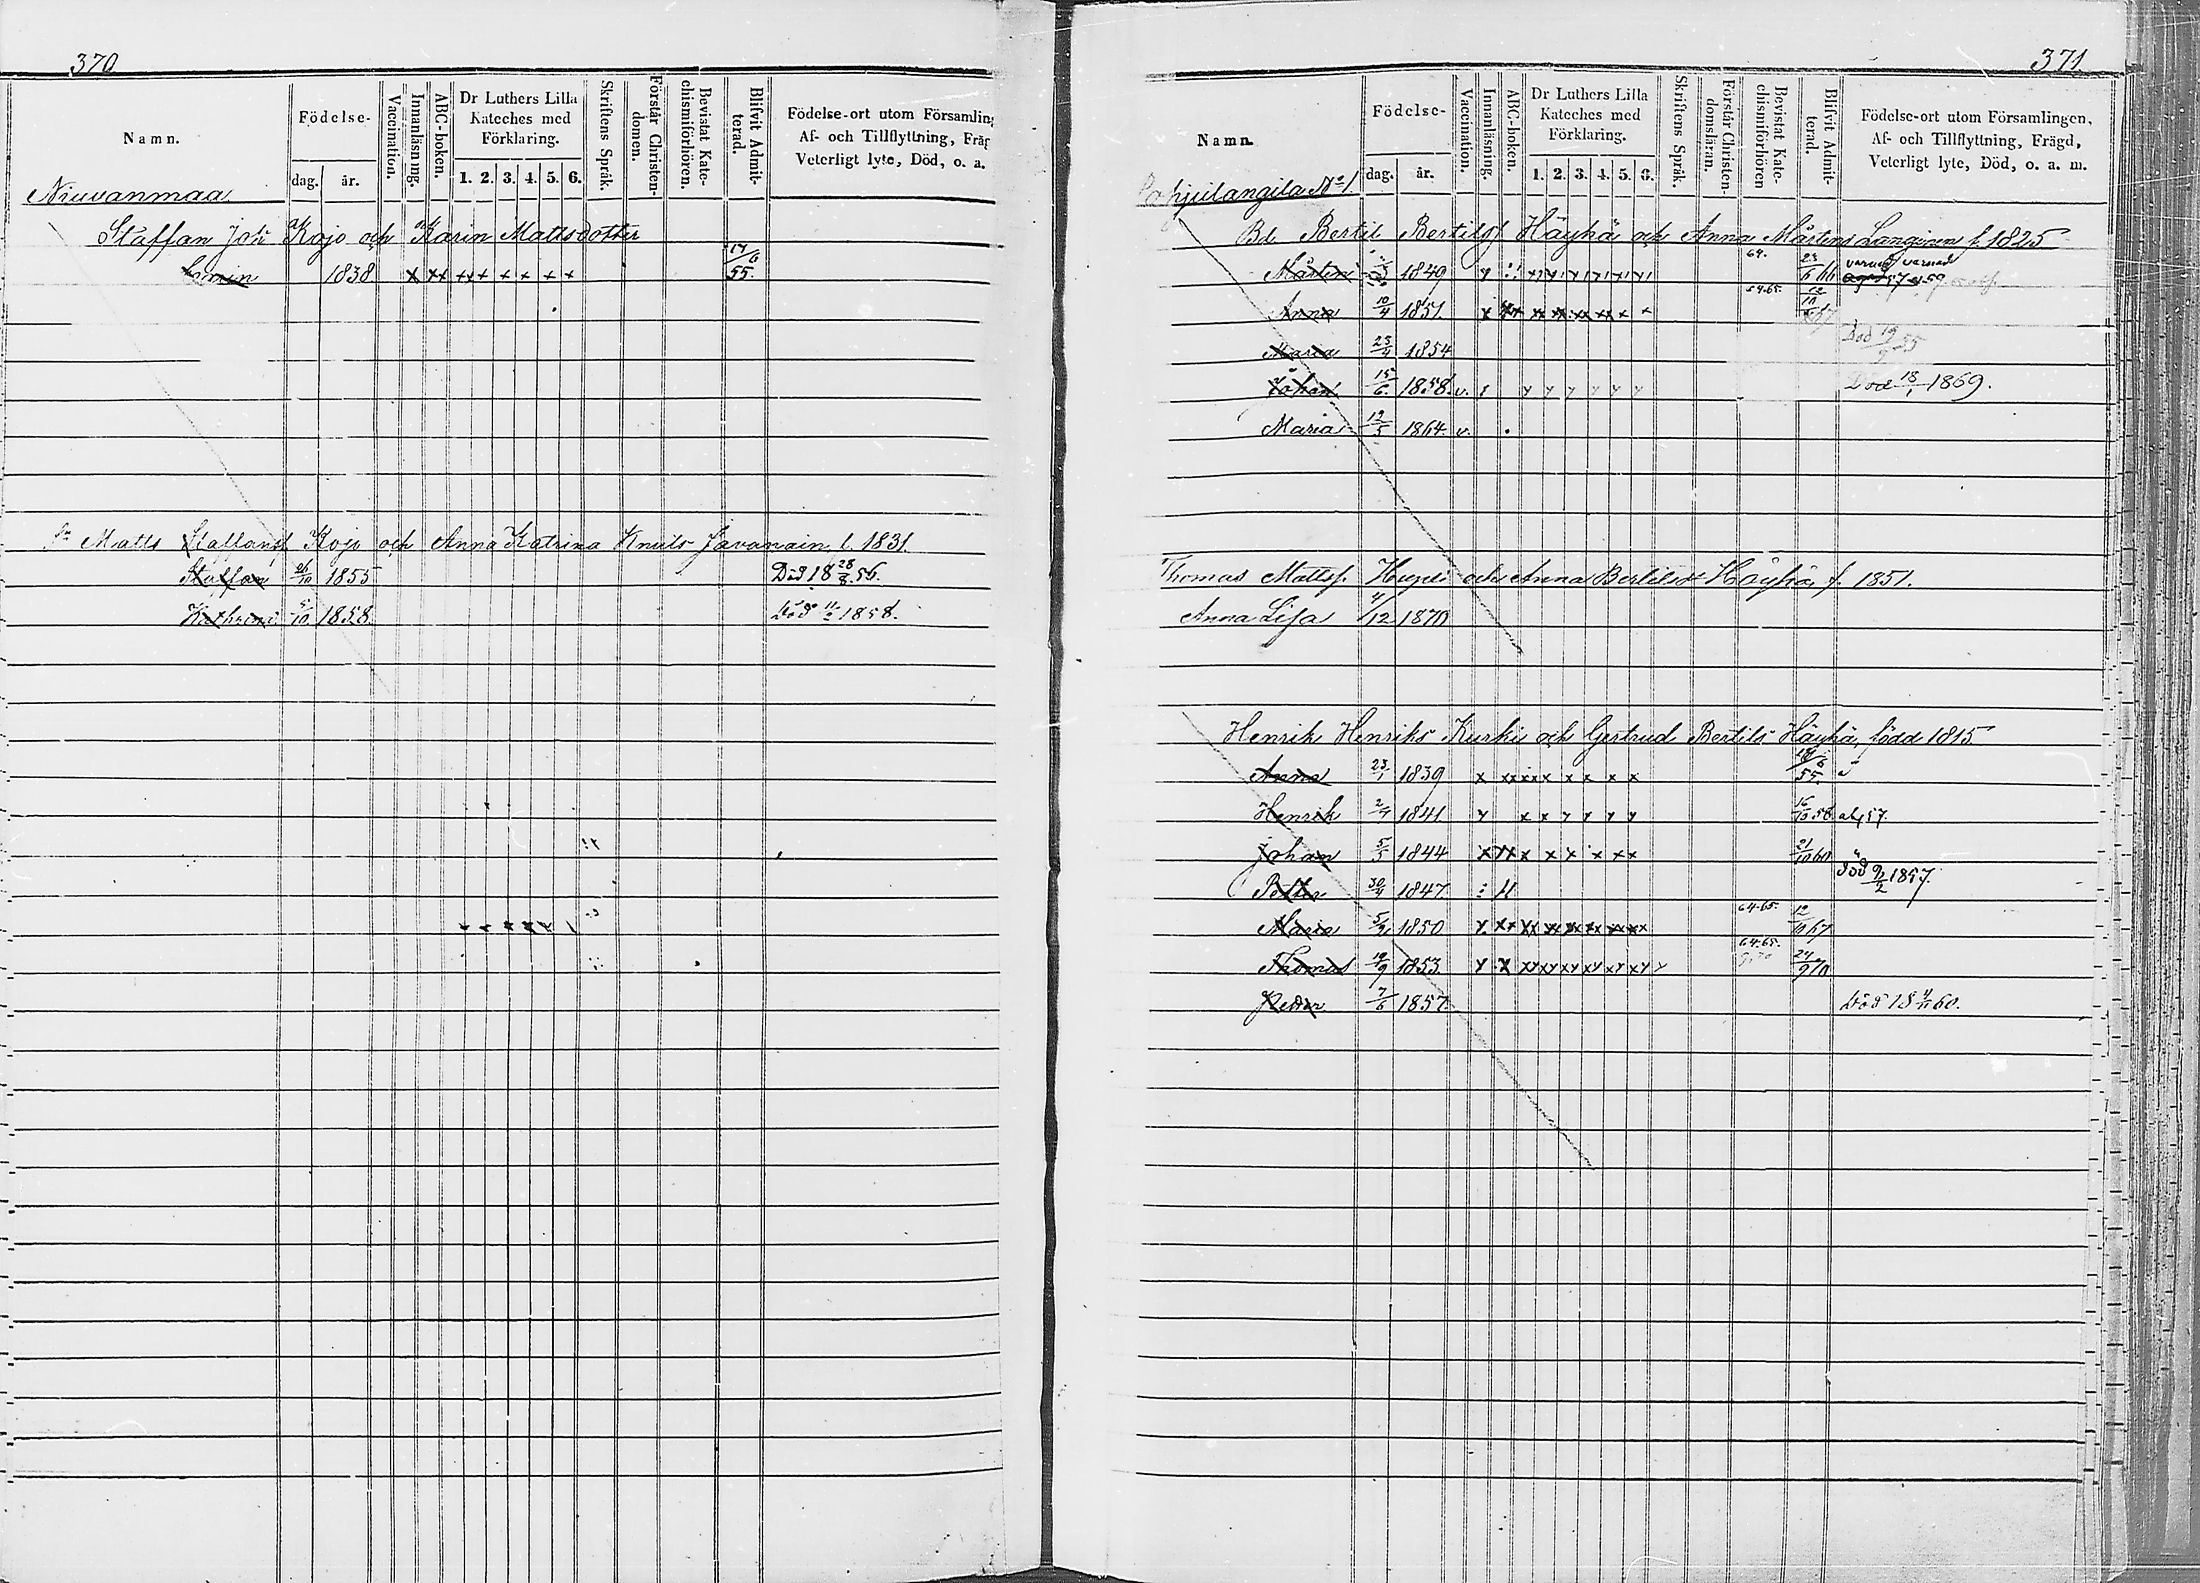 370
Namn. Födelse- dag. år. Vaccination. Innanläsning. ABC-boken. Dr Luthers Lilla Kateches med Förklaring. 1. 2. 3. 4. 5. 6. Skriftens Språk. Förstår Christendomen. Bevistat Katechismiförhören. Blifvit Admitterad. Födelse-ort utom Församling Af- och Tillflyttning, Fräg Veterligt lyte, Död, o. a.
Niuvanmaa
Staffan Joh Kojo och Karin Mattsdotter
1838 x xx xx x x x x x 17/6 55.
Matts Staffans Kojo och Anna Katrina Knuts Javanain f. 1831.
Staffan 26/10 1855 Död 18 28/8 56.
Kathrina 5/10 1858. Död 11/2 1858.
371
Namn. Födelse- dag. år. Vaccination. Innanläsning. ABC-boken. Dr Luthers Lilla Kateches med Förklaring. 1. 2. 3. 4. 5. 6. Skriftens Språk. Förstår Christendomsläran. Bevistat Katechismiförhören Blifvit Admitterad. Födelse-ort utom Församlingen, Af- och Tillflyttning, Frägd, Veterligt lyte, Död, o. a. m.
Pohjulangila No 1
Bd. Bertil Bertilsf Häyhä och Anna Mårtens Langinen f. 1825
Mårten 1849 64. 23/6 66
Anna 10/4 1851 64.65. 12/10 67
Maria 23/4 1854 Död 19/9 55
Johan 15/6 1858. v. Död 18/1 1869.
Maria 19/5 1864. v.
Thomas Mattsf. Hupli och Anna Bertilsdr Häyhä, f. 1851.
Anna Lisa 4/12 1870
Henrik Henriks Kurki och Gertrud Bertils Häyhä, född 1815
Anna 23/1 1839 x xx xx x x x x x 18/6 55
Henrik 2/4 1841 x x x x x x 16/10 58 abs 57.
Johan 5/5 1844 x xx x x x x x x 21/10 60
Petter 30/4 1847. död 9/2 1857.
Maria 5/2 1850 64-65. 12/10 67
Thomas 19/9 1853. 64.65. 24/9 70
Petter 7/6 1857. Död 18 4/11 60.